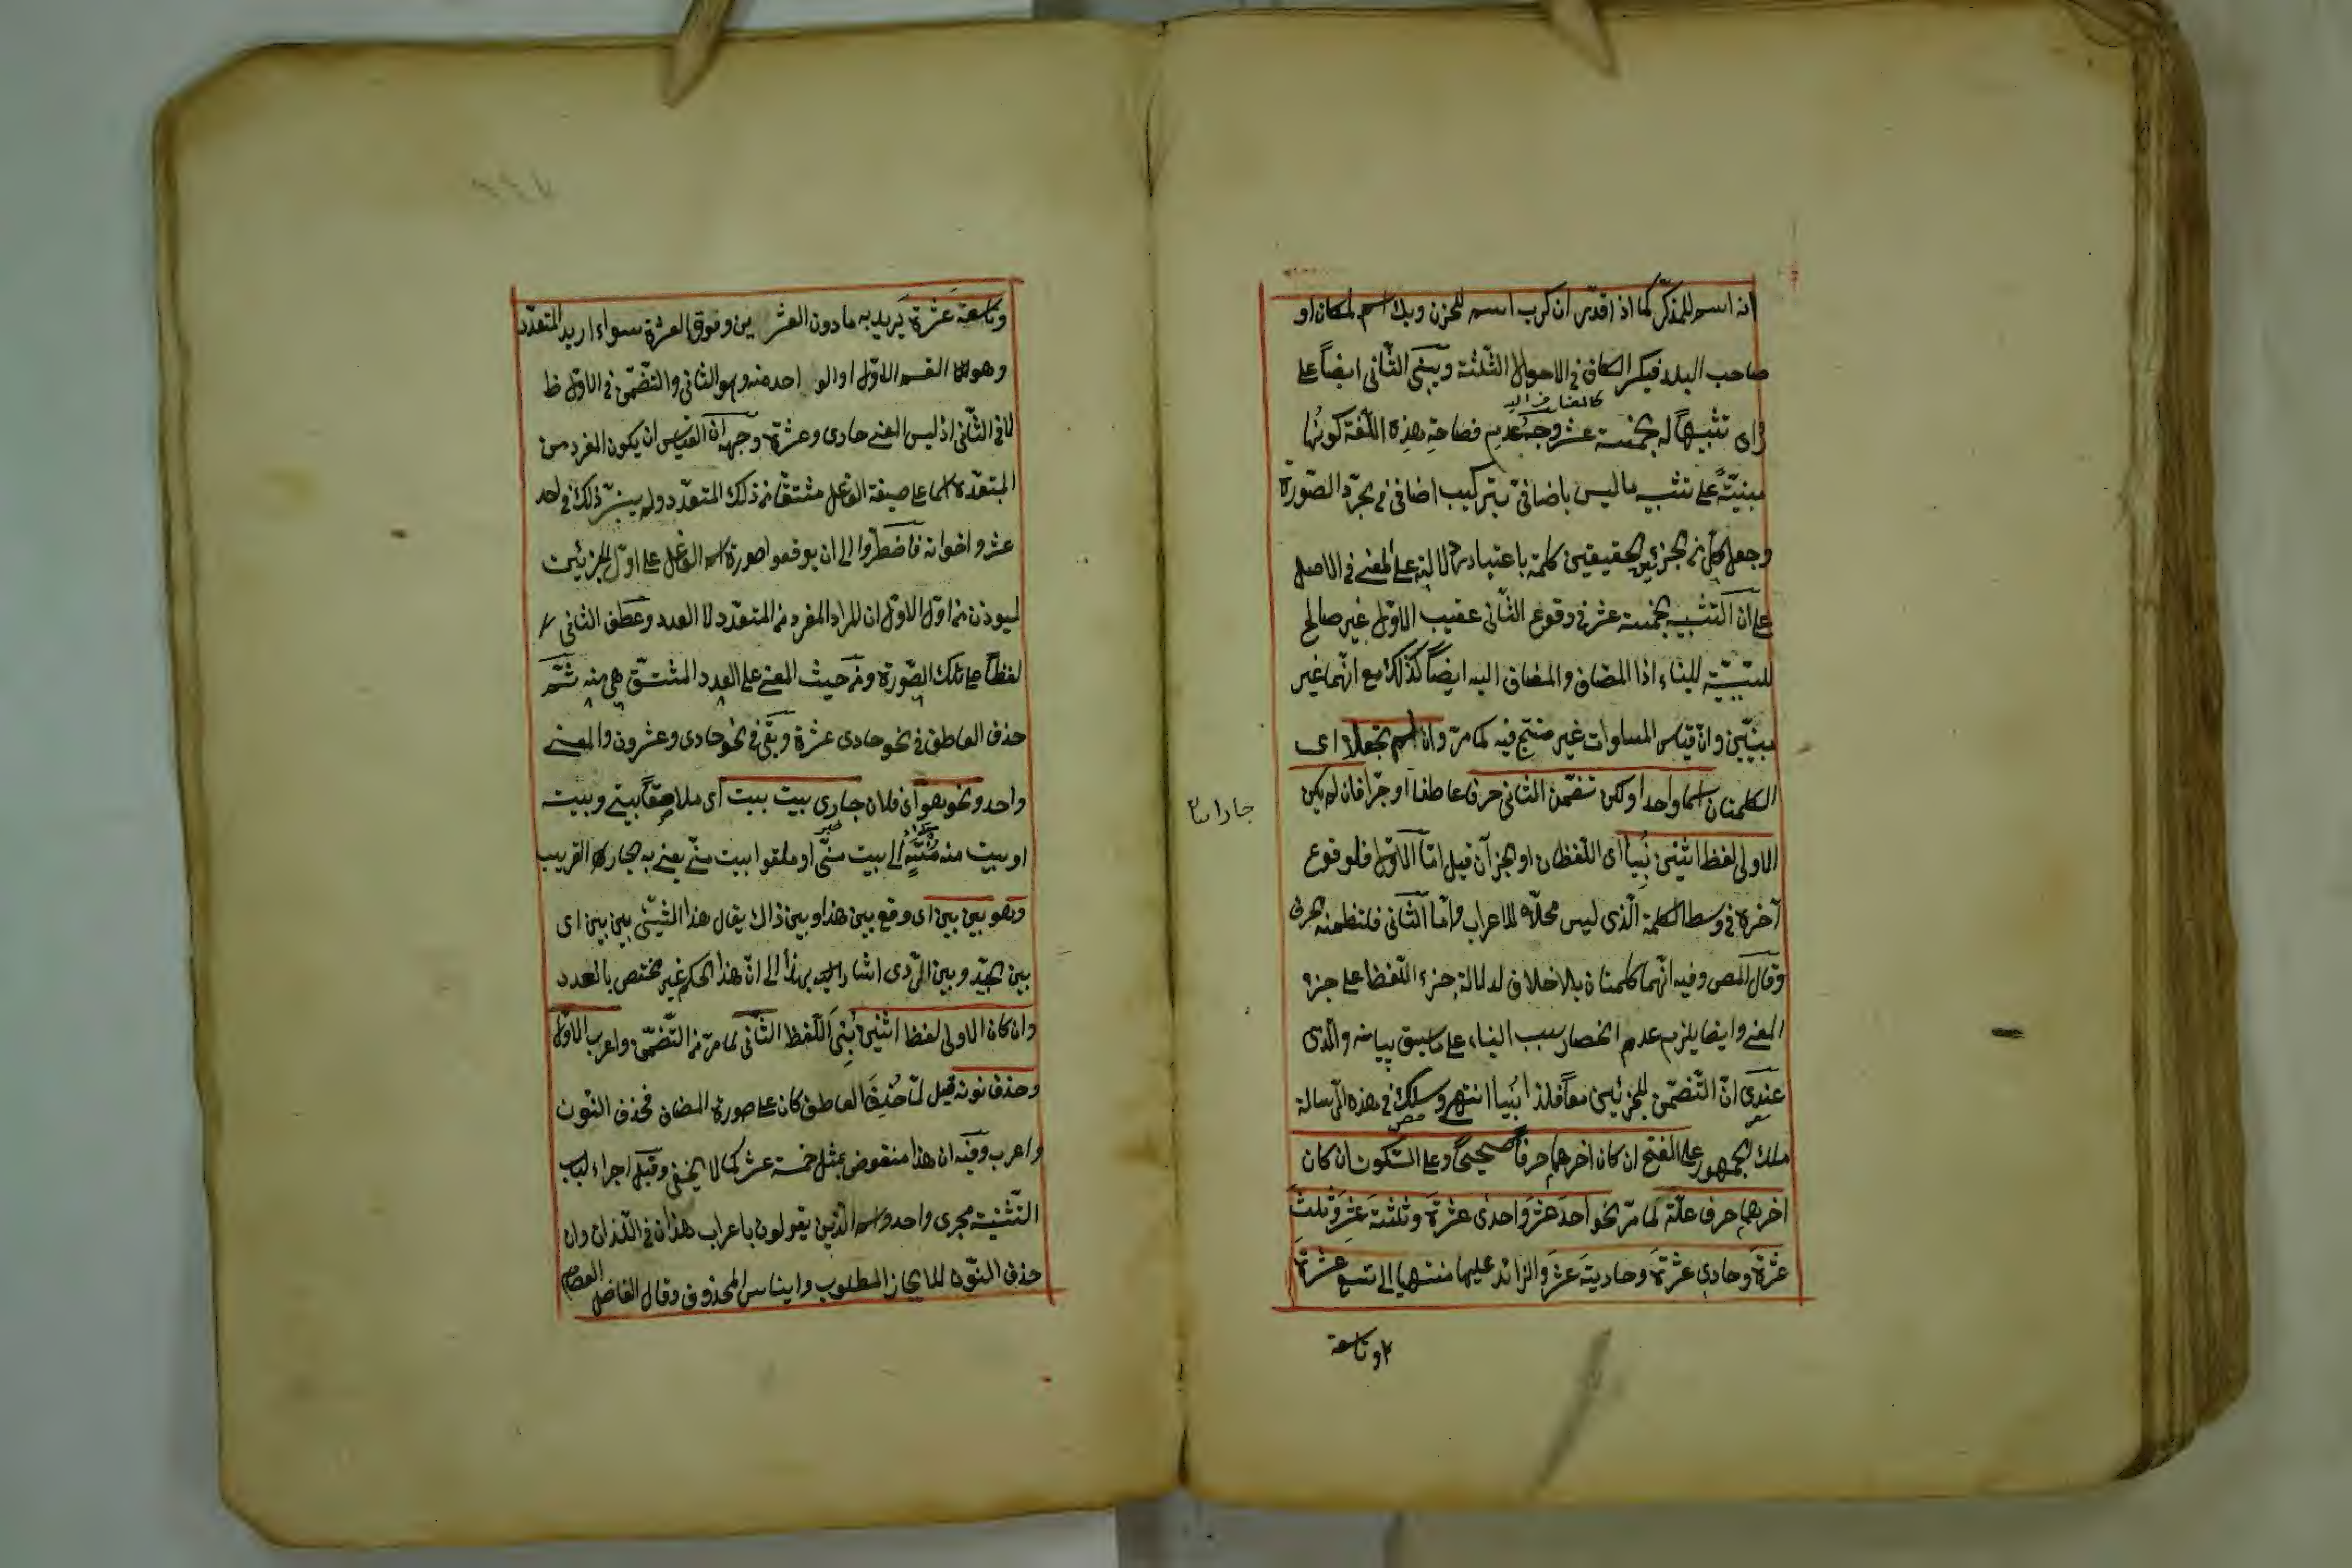 انه اسم للمذكّر كما اذا قدّر ان كرب اسم للحزن وبك اسم لمكان او
صاحب البلد فيكسر الكاف فى الاحوال الثّلثة ويبنى الثّانى ايضاً على
كالمضاف اليه
راى تشبيهاً له بخمسة عشر وجه عدم فصاحة هذه اللّغة كونها
مبنيّة على تشبيه ما ليس باضافىّ بتركيب اضافى فى مجرّد الصّورة
وجعل كل من الجزئين الحقيقيين كلمة باعتبار دلالته على المعنى فى الاصل
على ان التشبيه بخمسة عشر فى وقوع الثّانى عقيب الاوّل غير صالح
للسّببيّة للبناء اذا المضاف والمضاف اليه ايضاً كذلك مع انّهما غير
مبنيّين وانّ قياس المساوات غير منتج فيه كما مرّ وان لم يجعلا اى
الكلمتان اسما واحدا ولكن تضمّن الثّانى حرفا عاطفا او جرّا فان لم يكن
جارا
الاولى لفظ اثنين بُنِيا اى اللّفظان او الجزآن قيل امّا الاوّل فلوقوع
آخره فى وسط الكلمة الّذى ليس محلّا للاعراب وامّا الثّانى فلتضمنه الحرف
وقال المص وفيه انّهما كلمتان بلا خلاف لدلالة جزء اللّفظ على جزء
المعنى وايضا يلزم عدم انحصار سبب البناء على ما سبق بيانه والّذى
عندى انّ التّضمّن للجزئين معاً فلذا بُنيا انتهى وسلك فى هذه الرّسالة
مسلك الجمهور على الفتح ان كان اخرهما حرفاً صحيحاً وعلى السّكون ان كان
اخرهما حرف علّة كما مرّ نحو احدَ عشرَ واحدى عشرَةَ وثلثةَ عشَرَ وثلثَ
عشرَةَ وحادى عشرَةَ وحاديةَ عشَرَ والزّائد عليها منتهيا الى تسع عشرة
وتاسعة
وتاسعةَ عَشرَةَ يريد به ما دون العشرين وفوق العشرة سواء اريد المتعدّد
وهو القسم الاوّل او الواحد منه وهو الثانى والتّضمّن فى الاوّل ظ
لا فى الثّانى اذ ليس المعنى حادى وعشرة وجهه ان القياس ان يكون المفرد من
المتعدّد اسما على صيغة الفاعل مشتقّا من ذلك المتعدّد ولم يتيسّر ذلك فى احد
عشر واخواته فاضطرّوا الى ان يوقعوا صورة اسم الفاعل على اوّل الجزئين
ليوذن من اوّل الاوّل ان المراد المفرد من المتعدّد لا العدد وعطف الثانى
لفظاً على تلك الصّورة ومن حيث المعنى على العدد المشتقّ هى منه ثمّ
حذف العاطف فى نحو حادى عشرة وبقى فى نحو حادى وعشرون والمعنى
واحد ونحو هو ان فلان جارى بيت بيت اى ملاصقاً بيتى وبيته
او بيت منه الى بيت منّى او ملقوا بيت منّى يعنى به الجار القريب
وهو بين بين اى وقع بين هذا وبين ذاك يقال هذا الشّيئى بين بين اى
بين الجيّد وبين الرّدى اشار اليه بهذا الى انّ هذا الحكم غير مختص بالعدد
وان كان الاولى لفظ اثنين بُنِىَ اللّفظ الثّانى لما مرّ من التّضمّن واعرب الاوّل
وحذف نونه قيل لمّا حُذِفَ العاطف كان على صورة المضاف فحذف النّون
واعرب وفيه ان هذا منقوض بمثل خمسة عشر كما لا يخفى وقيل اجراء لباب
التّثنية مجرى واحد واسم الّذين يقولون باعراب هذان فى اللّذان وان
حذف النّون للايجاز المطلوب وايناس المحذوف وقال الفاضل العصام